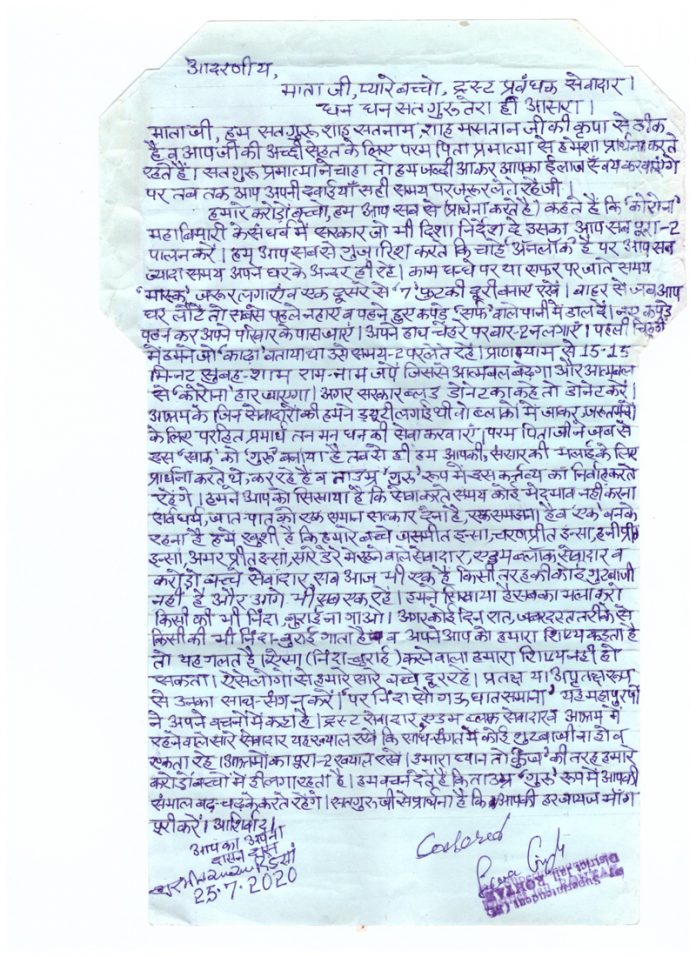 आदरणीय,
माता जी, प्यारे बच्चो, ट्रस्ट प्रबंधक सेवादार।
धन धन सतगुरु तेरा ही आसरा।
माता जी, हम सतगुरु शाह सतनाम, शाह मसतान जी की कृपा से ठीक
है व आप जी की अच्छी सेहत के लिए परम पिता प्रमात्मा से हमेशा प्रार्थना करते
रहते हैं। सतगुरु प्रमात्मा ने चाहा तो हम जल्दी आकर आपका ईलाज स्वंय करवाएंगे
पर तब तक आप अपनी दवाईयाँ सही समय पर जरूर लेते रहें जी।
हमारे करोड़ों बच्चो, हम आप सब से (प्रार्थना करते है) कहते है कि 'कोरोना'
महाबिमारी के संघर्ष में सरकार जो भी दिशा निर्देश दे उसका आप सब पूरा-2
पालन करें। हम आप सब से गुजारिश करते कि चाहे अनलॉक है पर आप सब
ज्यादा समय अपने घर के अन्दर ही रहें। काम धन्धे पर या सफर पर जाते समय
'मास्क' जरूर लगाएं व एक दूसरे से '7' फुट की दूरी बनाए रखें। बाहर से जब आप
घर लौटें तो सबसे पहले नहाएं व पहने हुए कपड़े 'सर्फ' वाले पानी में डाल दें। नए कपड़े
पहन कर अपने परिवार के पास जाएं। अपने हाथ चेहरे पर बार-2 न लगाएं। पहली चिट्ठी
में हमने जो 'काढ़ा' बताया था उसे समय-2 पर लेते रहें। प्राणायाम से 15-15
मिनट सुबह-शाम राम-नाम जपें जिससे आत्मबल बढ़ेगा और आत्मबल
से 'कोरोना' हार जाएगा। अगर सरकार ब्लड डोनेट का कहे तो डोनेट करें।
आश्रम के जिन सेवादारों की हमने ड्यूटी लगाई थी वो ब्लाकों में जाकर, जरूतमंदों
के लिए परहित प्रमार्थ तन मन धन की सेवा करवाएं। परम पिता जी ने जब से
इस 'खाक' को 'गुरू' बनाया है तब से ही हम आपकी, संसार की भलाई के लिए
प्रार्थना करते थे, कर रहे है व ताउम्र 'गुरू' रूप में इस कर्त्तव्य का निर्वाह करते
रहेंगे। हमने आपको सिखाया है कि सेवा करते समय कोई भेदभाव नहीं करना
सर्व धर्म, जात-पात को एक समान सत्कार देना है, एक समझना है व एक बनके
रहना है हमें खुशी है कि हमारे बच्चे जसमीत इन्सा, चरणप्रीत इन्सा, हनीप्रीत
इन्सां, अमर प्रीत इन्सा, सारे डेरे में रहने वाले सेवादार, एडम ब्लॉक सेवादार व
करोड़ों बच्चे सेवादार सब आज भी एक हैं किसी तरह की कोई गुटबाजी
नहीं है और आगे भी सब एक रहें। हमने सिखाया है सबका भला करो
किसी की भी निंदा, बुराई ना गाओ। अगर कोई दिन रात, जबरदस्त तरीके से
किसी की भी निंदा-बुराई गाता है व अपने आप को हमारा शिष्य कहता है
तो यह गलत है। ऐसा (निंदा-बुराई) करने वाला हमारा शिष्य नही हो
सकता। ऐसे लोगों से हमारे सारे बच्चे दूर रहें। प्रतक्ष या अप्रतक्ष रूप
से उनका साथ-संग न करें। 'पर निंदा सौ गऊ घात समाना' यह महापुरषों
ने अपने वचनों में कहा है। ट्रस्ट सेवादार, एडम ब्लॉक सेवादार व आश्रम में
रहने वाले सारे सेवादार यह ख्याल रखें कि साध-संगत में कोई गुटबाजी ना हो व
एकता रहे। आश्रमों का पूरा-2 ख्याल रखें। हमारा ध्यान तो 'कुंज' की तरह हमारे
करोड़ों बच्चों में ही लगा रहता है। हम वचन देते है कि ताउम्र 'गुरू' रूप में आपकी
संभाल बढ़-चढ़ के करते रहेंगे। सतगुरु जी से प्रार्थना है कि आपकी हर जायज माँग
पूरी करें। आशिर्वाद।
आप का अपना
दासन दास
25.7.2020
Censored
Superintendent
District Jail, ROHTAK